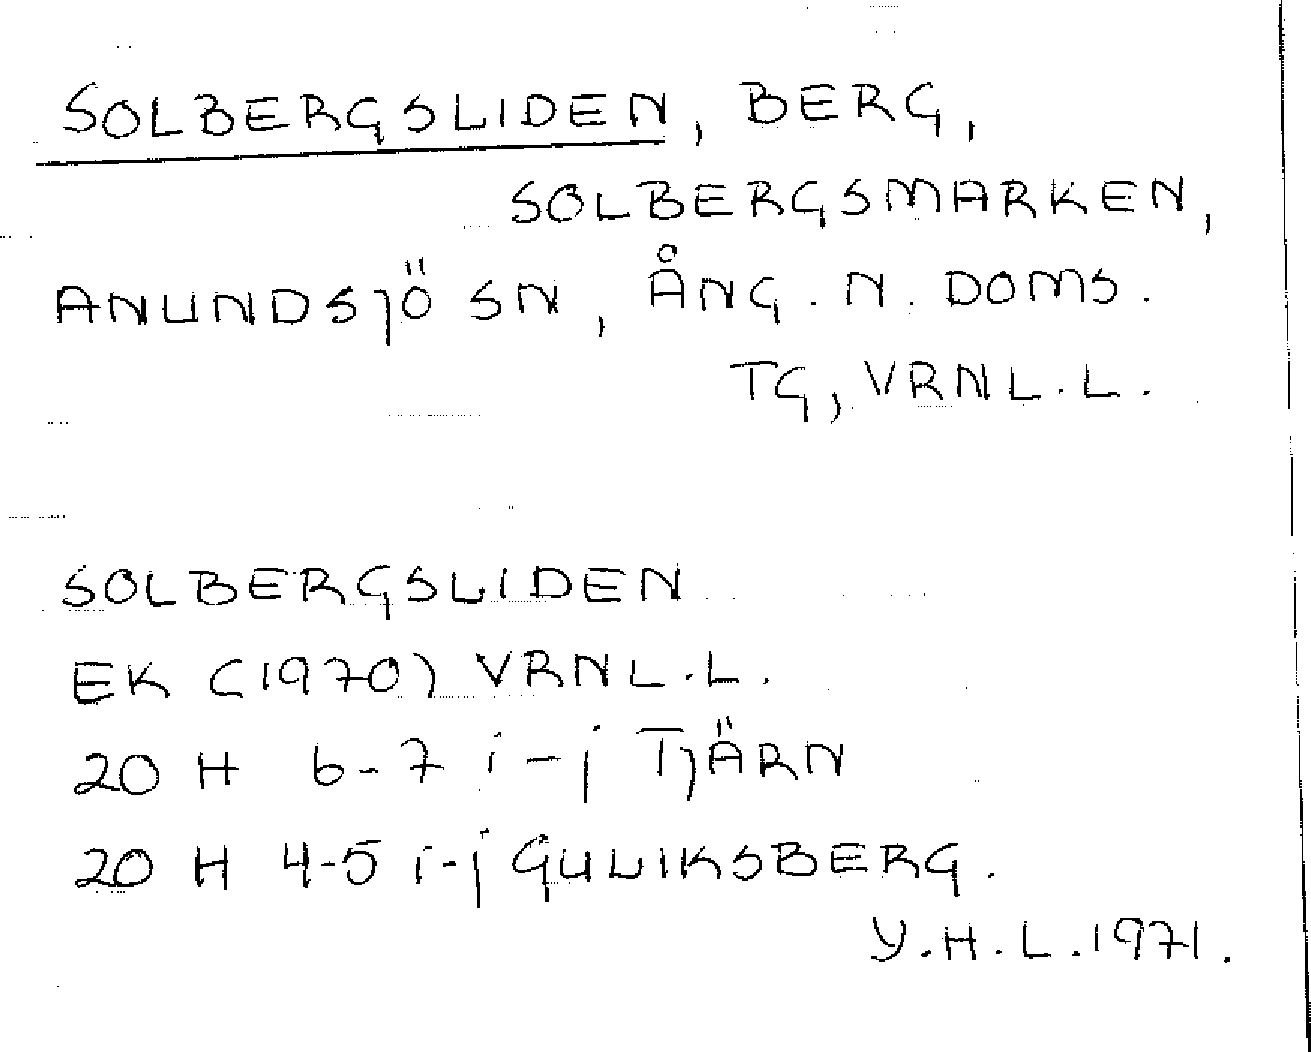 SOLBERGSLIDEN, BERG,
SOLBERGSMARKEN,
ANUNDSJÖ SN, ÅNG. N. DOMS.
TG, VRNL.L.
SOLBERGSLIDEN
EK (1970) VRNL.L.
20 H 6-7 i-j TJÄRN
20 H 4-5 i-j GULIKSBERG.
Y.H.L.1971.